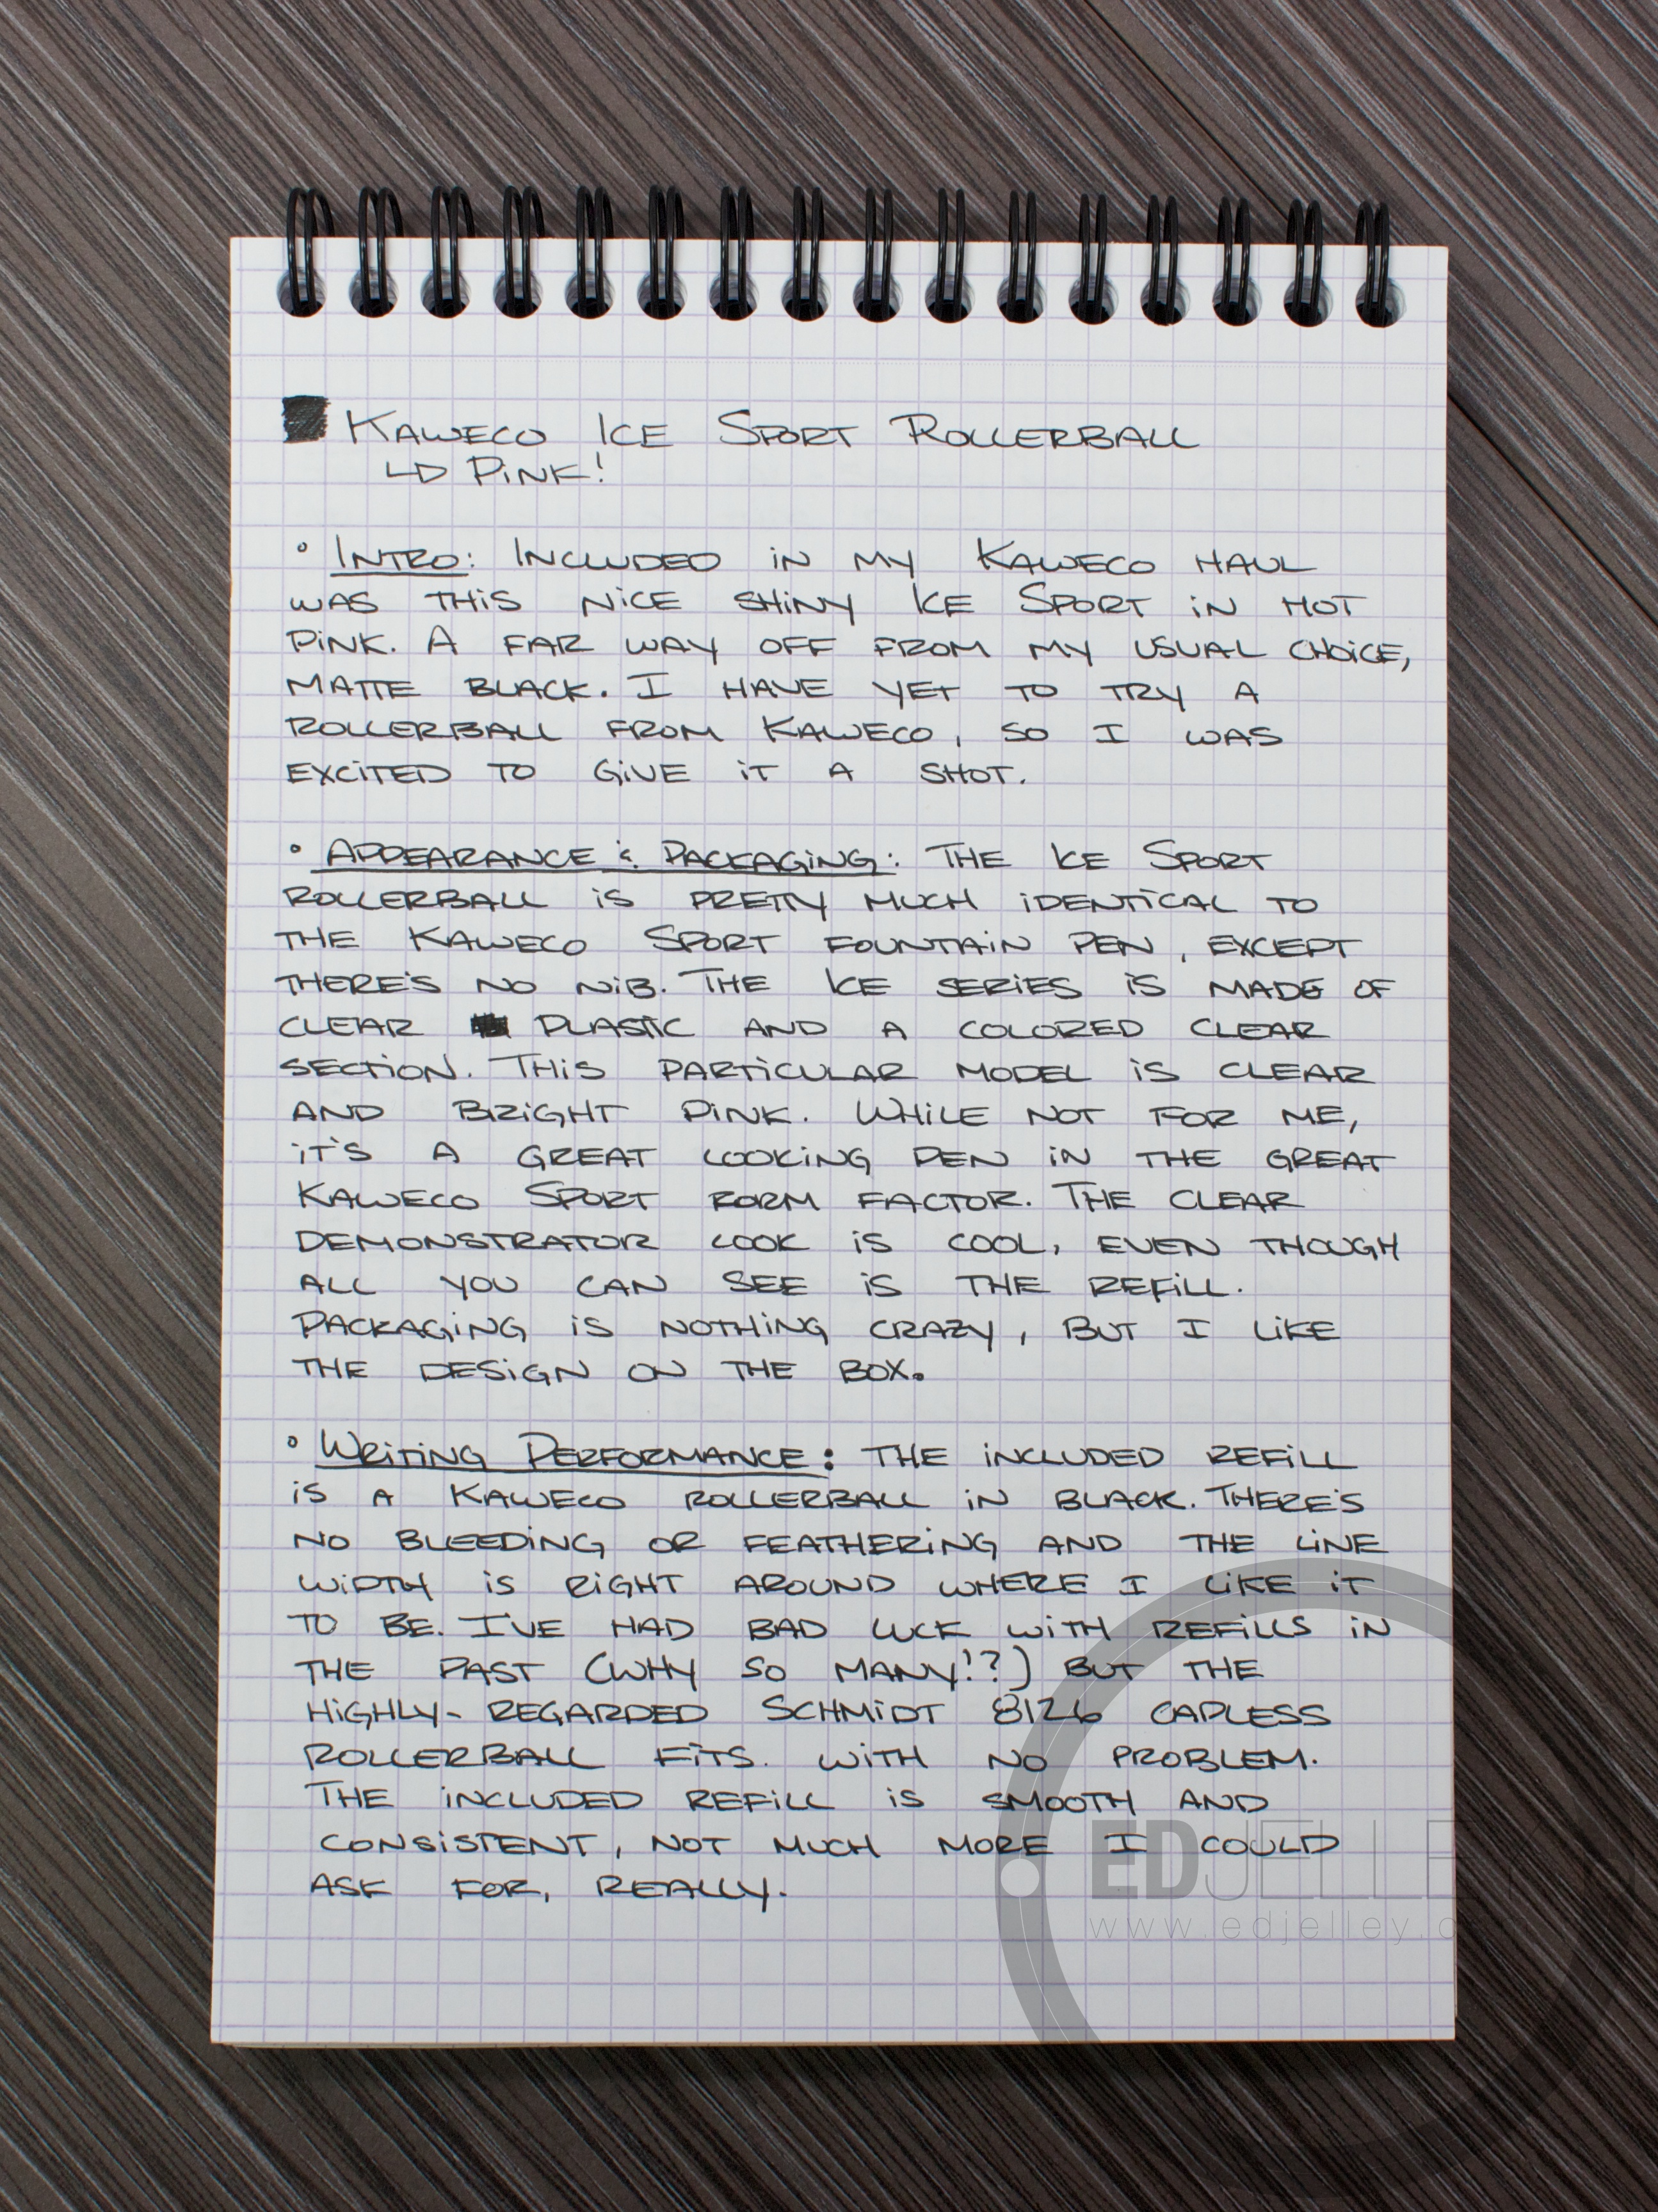 KAWECO ICE SPORT ROLLERBALL
↳ PINK!
• INTRO: INCLUDED IN MY KAWECO HAUL
WAS THIS NICE SHINY ICE SPORT IN HOT
PINK. A FAR WAY OFF FROM MY USUAL CHOICE,
MATTE BLACK. I HAVE YET TO TRY A
ROLLERBALL FROM KAWECO, SO I WAS
EXCITED TO GIVE IT A SHOT.
• APPEARANCE & PACKAGING: THE ICE SPORT
ROLLERBALL IS PRETTY MUCH IDENTICAL TO
THE KAWECO SPORT FOUNTAIN PEN, EXCEPT
THERE'S NO NIB. THE ICE SERIES IS MADE OF
CLEAR PLASTIC AND A COLORED CLEAR
SECTION. THIS PARTICULAR MODEL IS CLEAR
AND BRIGHT PINK. WHILE NOT FOR ME,
IT'S A GREAT LOOKING PEN IN THE GREAT
KAWECO SPORT FORM FACTOR. THE CLEAR
DEMONSTRATOR LOOK IS COOL, EVEN THOUGH
ALL YOU CAN SEE IS THE REFILL.
PACKAGING IS NOTHING CRAZY, BUT I LIKE
THE DESIGN ON THE BOX.
• WRITING PERFORMANCE: THE INCLUDED REFILL
IS A KAWECO ROLLERBALL IN BLACK. THERE'S
NO BLEEDING OR FEATHERING AND THE LINE
WIDTH IS RIGHT AROUND WHERE I LIKE IT
TO BE. I'VE HAD BAD LUCK WITH REFILLS IN
THE PAST (WHY SO MANY!?) BUT THE
HIGHLY-REGARDED SCHMIDT 8126 CAPLESS
ROLLERBALL FITS. WITH NO PROBLEM.
THE INCLUDED REFILL IS SMOOTH AND
CONSISTENT, NOT MUCH MORE I COULD
ASK FOR, REALLY.
EDJELLEY
www.edjelley.c